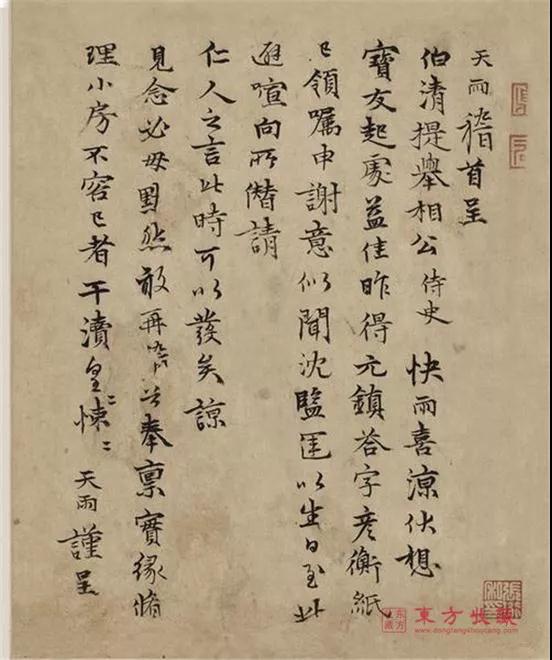 天雨稽首呈
伯清提舉相公侍史 快雨喜凉伏想
寶友起處益佳昨得元鎮答字彦衡紙
已領囑申謝意似聞沈監匠以生日至此
避喧向所僭請
仁人之言此時可以發矣諒
見念必毋默然敢再稽首奉稟實緣脩
理小房不容已者干瀆皇〻悚〻 天雨謹呈
東方收藏
www.dongfangshoucang.com